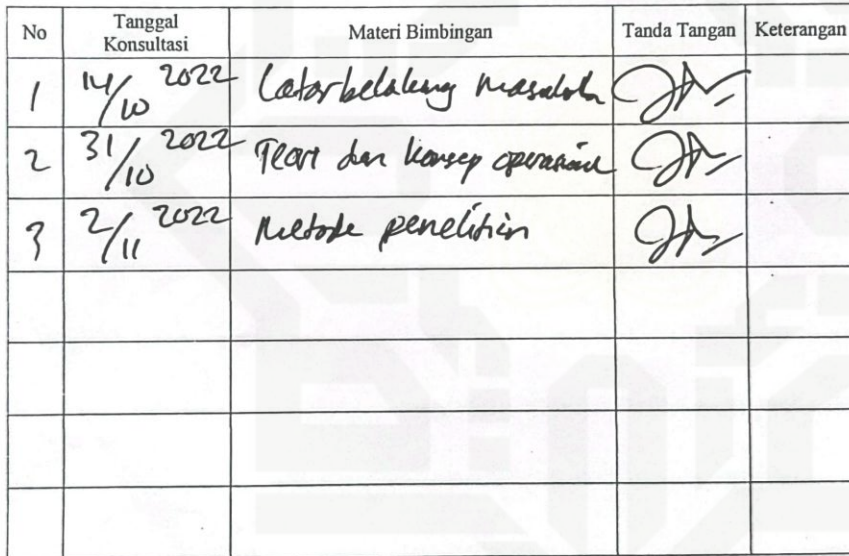 No Tanggal Konsultasi Materi Bimbingan Tanda Tangan Keterangan
1 14/10 2022 Latar belakang masalah
2 31/10 2022 Teori dan konsep operasional
3 2/11 2022 Metode penelitian